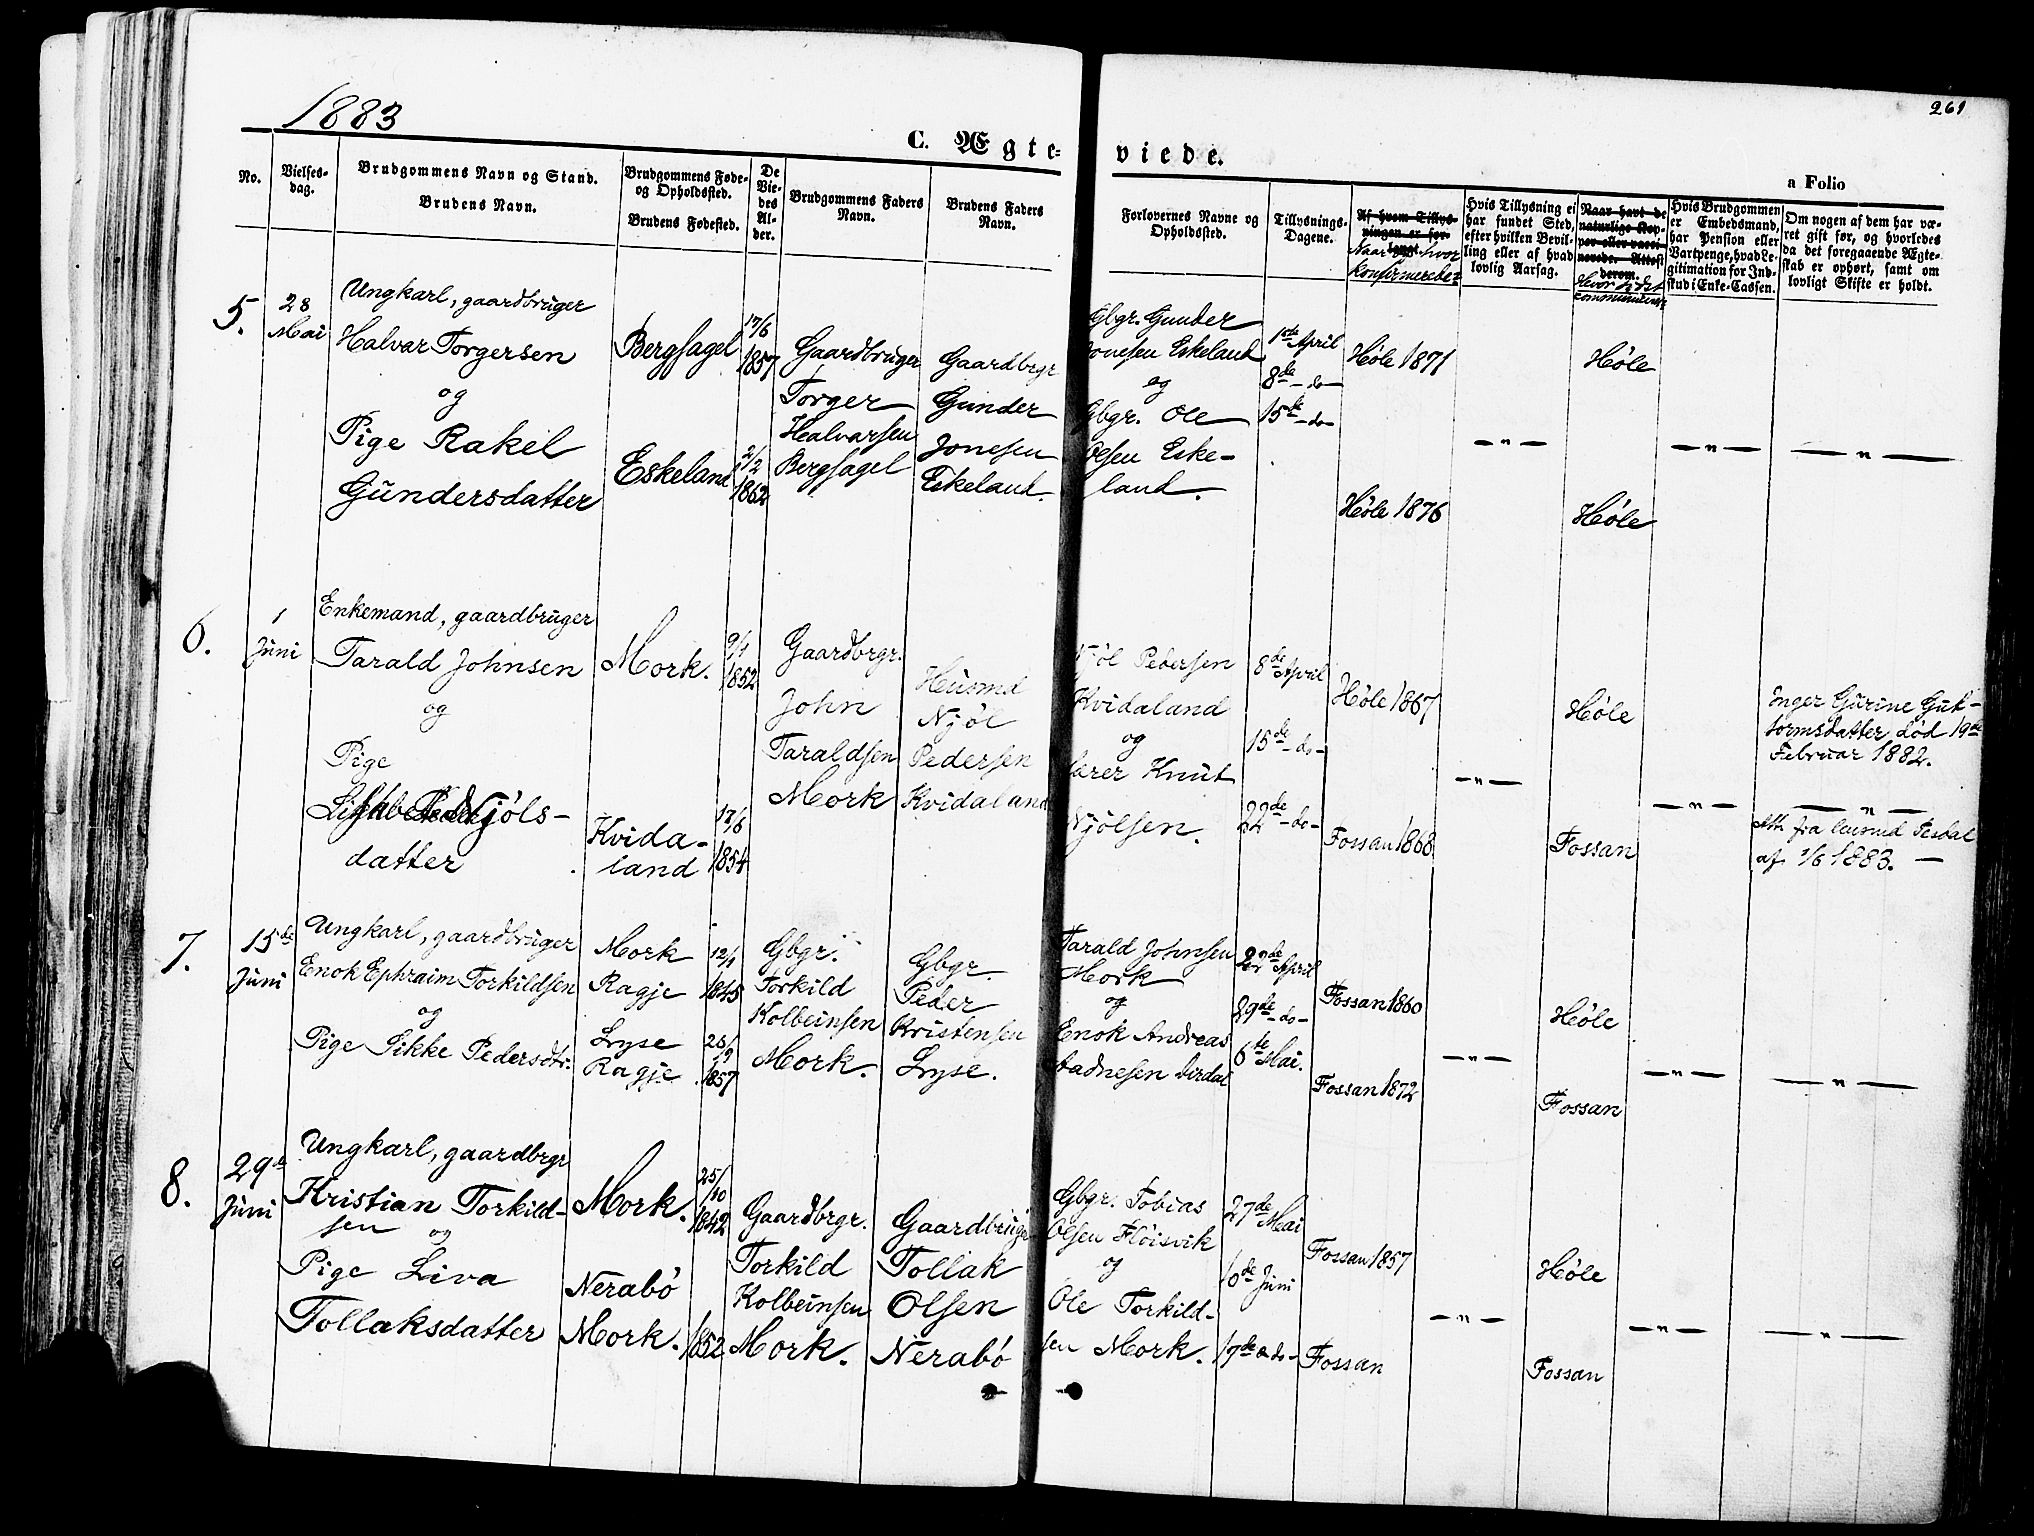 1883
261
C. Ægte-
viede.
a Folio
No.
Vielses-
dag.
Brudgommens Navn og Stand.
Brudens Navn.
Brudgommens Føde-
og Opholdssted.
Brudens Fødested.
De
Vie-
des
Al-
der.
Brudgommens Faders
Navn.
Brudens Faders
Navn.
Forlovernes Navne og
Opholdssted.
Tillysnings-
Dagene.
Af hvem Tillys-
ningen er for-
langt.
Naar og hvor
konfirmerede
Hvis Tillysning ei
har fundet Sted,
efter hvilken Bevil-
ling eller af hvad
lovlig Aarsag.
Naar havt de
naturlige Kop-
per eller vacci-
nerede. Attest
derom.
Hvor sidst
communicerede
Hvis Brudgommen
er Embedsmand,
har Pension eller
Vartpenge, hvad Le-
gitimation for Ind-
skud i Enke-Cassen.
Om nogen af dem har væ-
ret gift før, og hvorledes
da det foregaaende Ægte-
skab er ophørt, samt om
lovligt Skifte er holdt.
5.
28
Mai
Ungkarl, gaardbruger
Halvar Torgersen
og
Pige Rakel
Gundersdatter
Bergsagel
Eskeland
17/6
1857
2/2
1862
Gaardbruger
Torger
Halvarsen
Bergsagel
Gaardbrgr
Gunder
Jonesen
Eskeland.
Gbgr. Gunder
Jonesen Eskeland
og
Gbgr. Ole
Olsen Eske-
land.
1ste April
8de - do -
15de - do -
Høle 1871
Høle 1876
- " -
Høle
Høle
- " -
- " -
6.
1
Juni
Enkemand, gaardbruger
Tarald Johnsen
og
Pige
Njøls-
datter
Mork.
Kvida-
land
9/1
1852
17/6
1854
Gaardbrgr.
John
Taraldsen
Mork
Husmd
Njøl
Pedersen
Kvidaland
Njöl Pedersen
Kvidaland
og
Knut
Njölsen.
8de April
15de - do -
22de - do -
Høle 1867
Fossan 1868
- " -
Høle
Fossan
- " -
Inger Gurine Gut-
tormsdatter død 19de
Februar 1882.
- " -
Att. fra
af 1/6 1883. -
7.
15de
Juni
Ungkarl, gaardbruger
Enok Ephraim Torkildsen
og
Pige Sikke Pedersdtr.
Mork
Ragje
Lyse
Ragje
12/1
1845
28/
/9
1857
Gbgr.
Torkild
Kolbeinsen
Mork.
Gbgr.
Peder
Kristensen
Lyse.
Tarald Johnsen
Mork
og
Enok Andreas
Dirdal
22de April
29de - do -
6te Mai.
Fossan 1860
Fossan 1872
- " -
Høle
Fossan
- " -
- " -
8.
29de
Juni
Ungkarl, gaardbrgr
Kristian Torkild-
sen og
Pige Liva
Tollaksdatter
Mork.
Nerabö
Mork.
25/
/10
1842
1852
Gaardbrgr.
Torkild
Kolbeinsen
Mork.
Gaardbruger
Tollak
Olsen
Nerabö
Gbgr. Tobias
Olsen Fløisvik
og
Ole Torkild-
sen Mork.
27de Mai
10de Juni
17de - do -
Fossan 1857
Fossan
- " -
Høle
Fossan
- " -
- " -